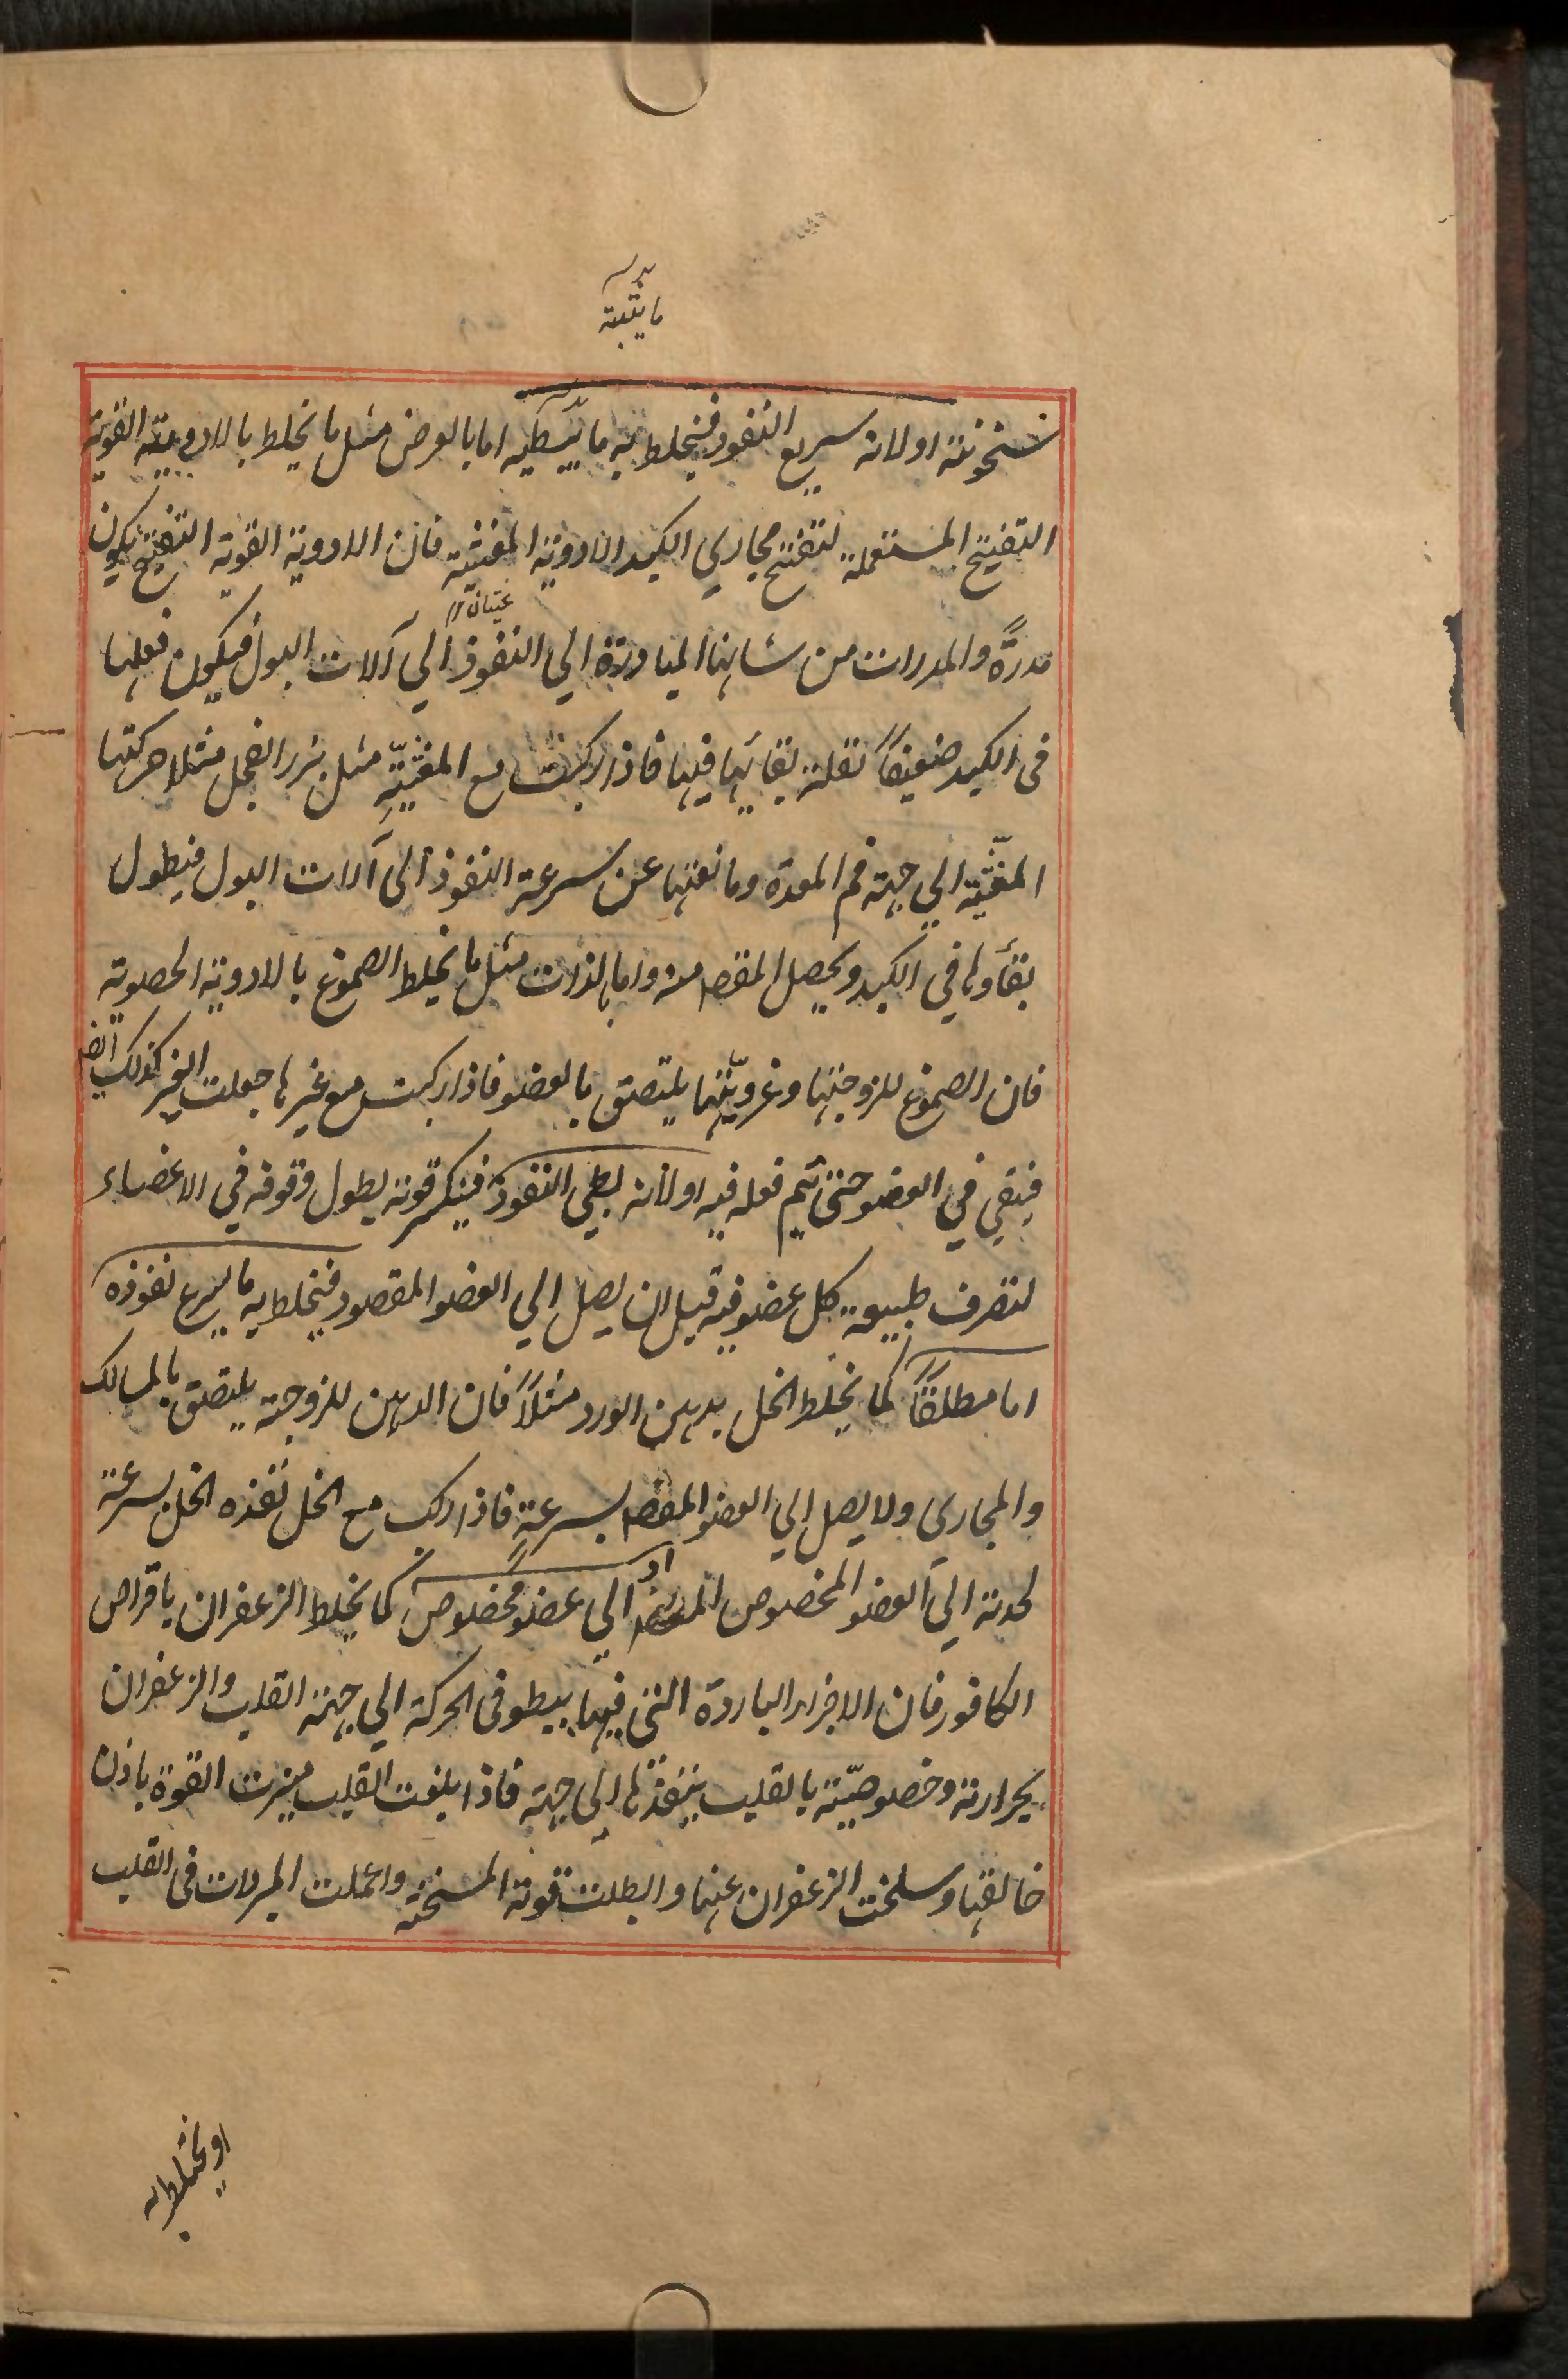 ما يثبته
سخونته او لانه سريع النفوذ فيخلط به ما يبطيه اما بالعرض مثل ما يخلط بالادوية القوية
التفتيح المستعملة لتفتيح مجاري الكبد الادوية المغثية فان الادوية القوية التفتيح يكون
مدرّة والمدرات من شانها المبادرة الي النفوذ الي آلات البول فيكون فعلها
في الكبد ضعيفاً لقلة بقائها فيها فاذا ركبت مع المغثيّة مثل بزر الفجل مثلا حركتها
المغثّية الي جهة فم المعدة ومانعتها عن سرعة النفوذ الي آلات البول فيطول
بقاؤها في الكبد ويحصل المقصـ منه واما بالذات مثل ما يخلط الصموغ بالادوية الحصوية
فان الصموغ للزوجتها وغرويّتها يلتصق بالعضو فاذا ركبت مع غيرها جعلت الغير كذلك ايضـ
فيبقي في العضو حتي يتم فعله فيه او لانه بطي النفوذ فينكسر قوته لطول وقوفه في الاعضاء
لتصرف طبيعة كل عضو فيه قبل ان يصل الي العضو المقصود فيخلط به ما يسرع نفوذه
اما مطلقاً كما يخلط الخل بدهن الورد مثلاً فان الدهن للزوجته يلتصق بالمسالك
والمجاري ولا يصل الي العضو المقصـ بسرعةٍ فاذا ركب مع الخل نفذه الخل بسرعة
لحدته الي العضو المخصوص او الي عضو مخصوص كما يخلط الزعفران باقراص
الكافور فان الاجزاء الباردة التي فيها يبطو في الحركة الي جهة القلب والزعفران
بحرارته وخصوصيّته بالقلب ينفذها الي جهته فاذا بلغت القلب ميزت القوة باذن
خالقها وسلخت الزعفران عنها وابطلت قوته المسخنة واعملت المبردات في القلب
او يخلط به